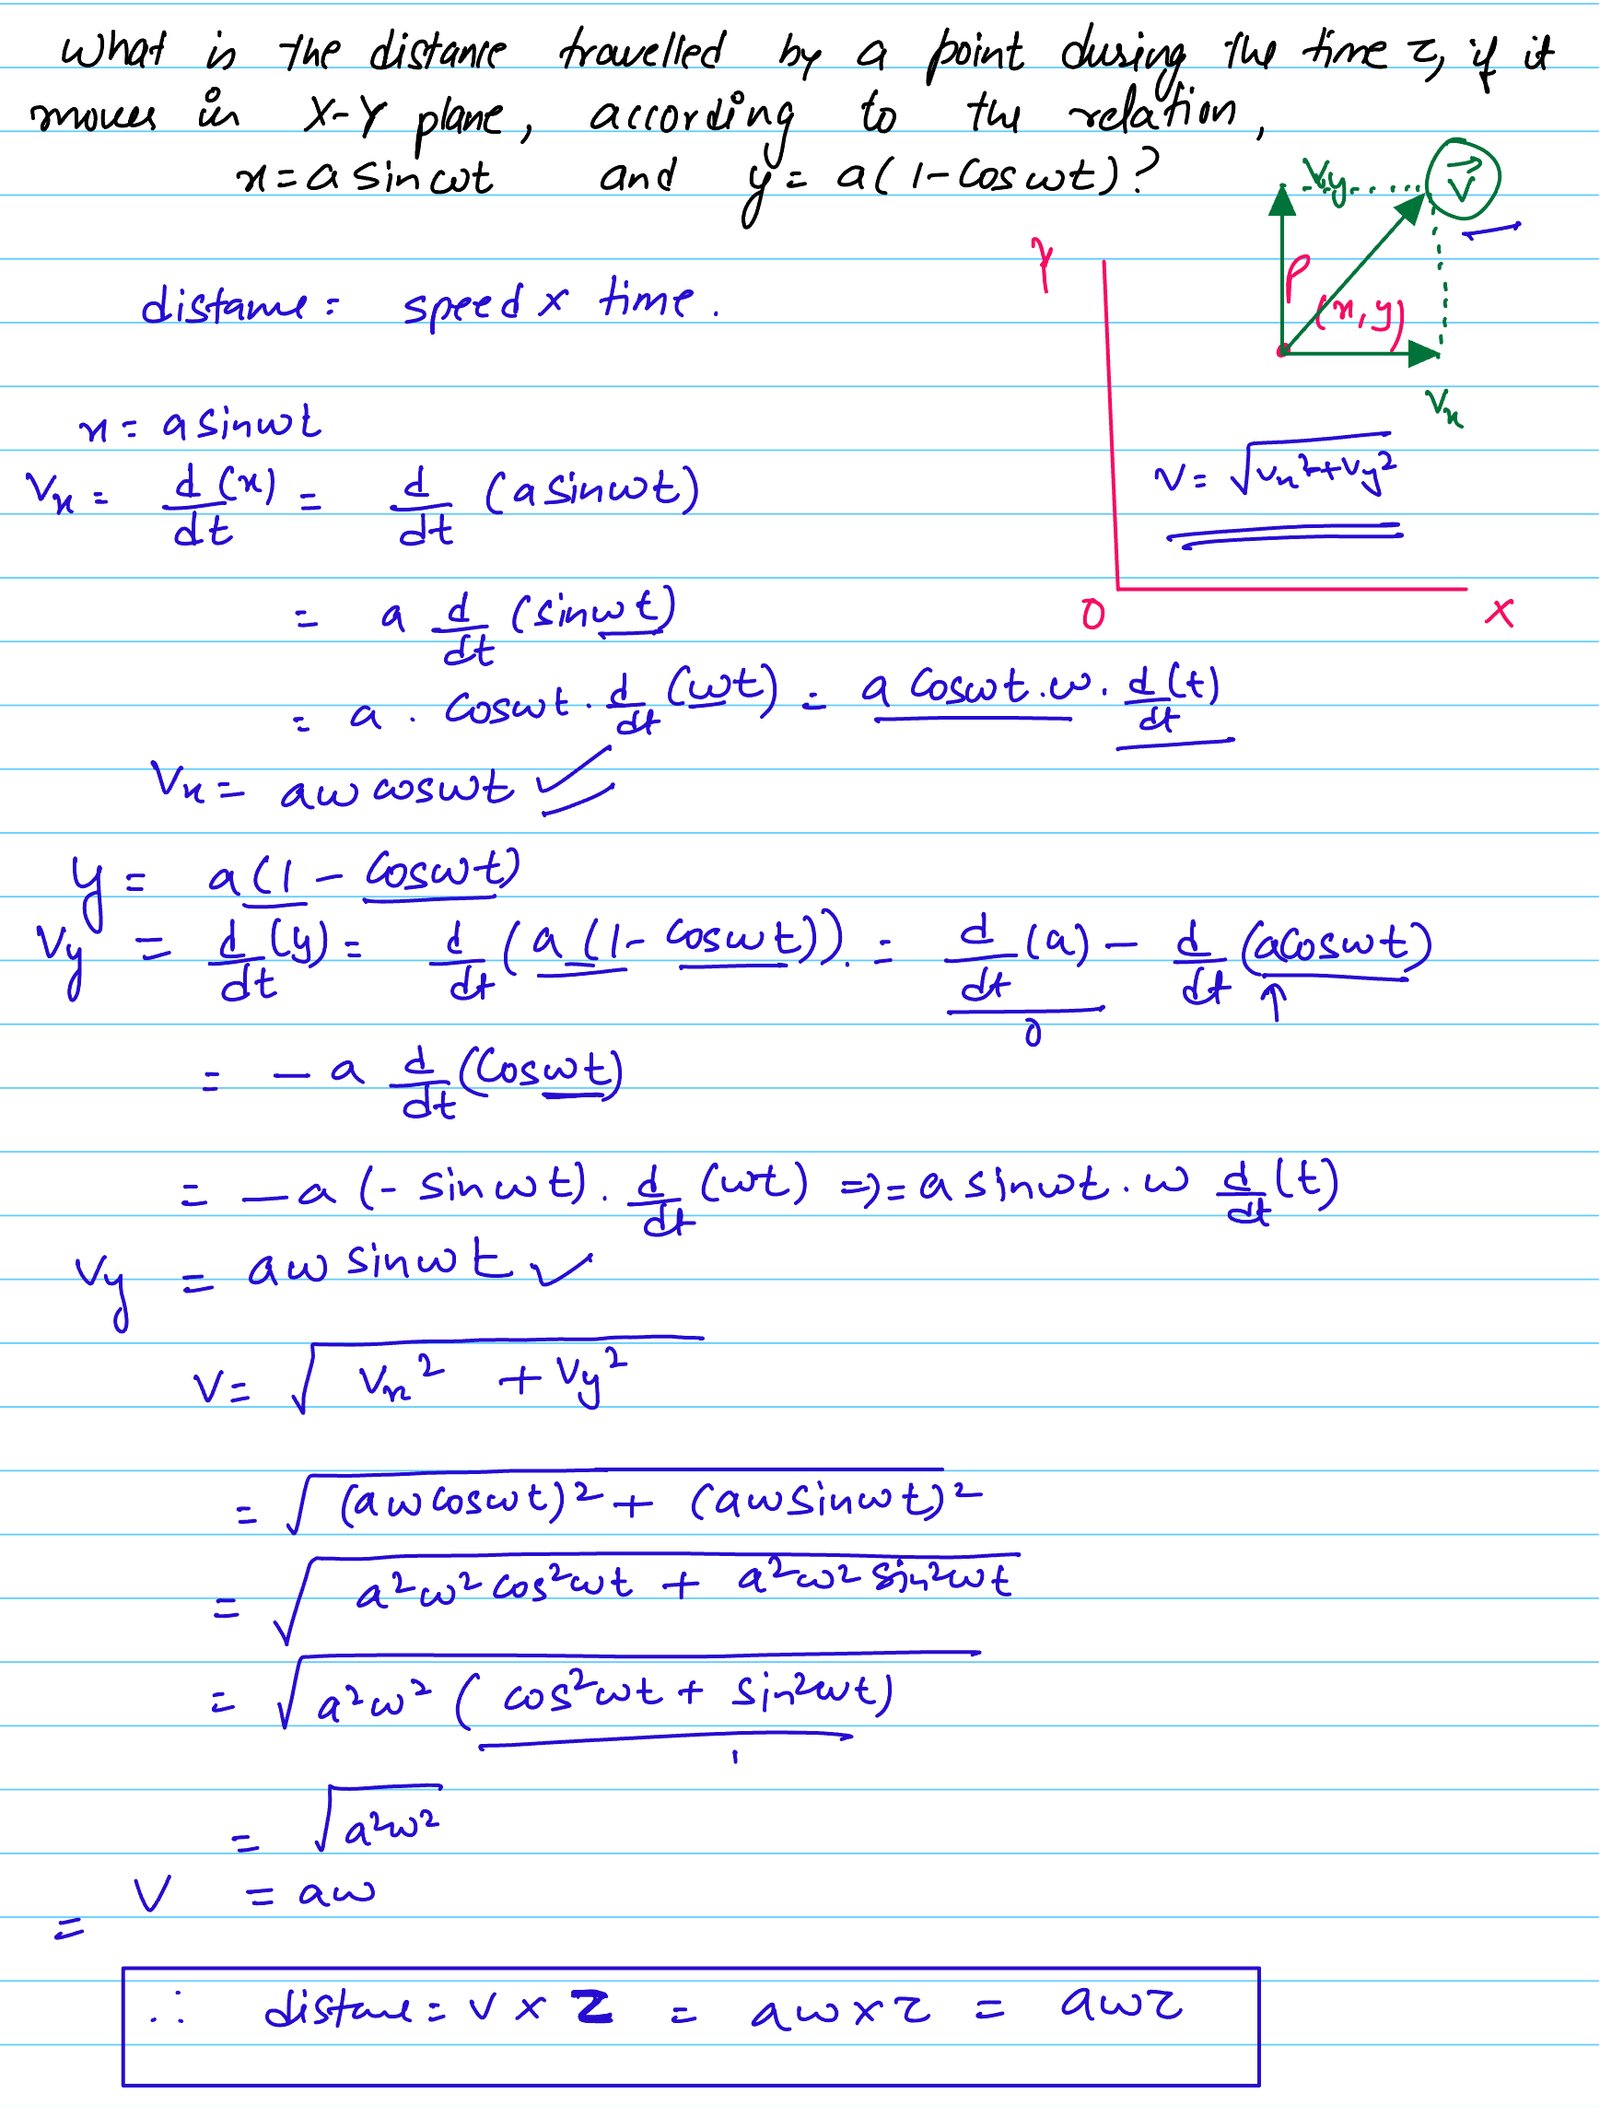 What is the distance travelled by a point during the time τ, if it
moves in X-Y plane, according to the relation,
x = a sin ωt and y = a(1 - cos ωt)?
Vy V⃗
Y
P
(x, y)
Vx
V = √(Vx² + Vy²)
O X
distance = speed × time.
x = a sin ωt
Vx = d/dt (x) = d/dt (a sin ωt)
= a d/dt (sin ωt)
= a . cos ωt . d/dt (ωt) = a cos ωt . ω . d/dt (t)
Vx = aω cos ωt ✓
y = a(1 - cos ωt)
Vy = d/dt (y) = d/dt (a(1 - cos ωt)). = d/dt (a) - d/dt (a cos ωt)
0 ↑
= - a d/dt (cos ωt)
= - a (- sin ωt) . d/dt (ωt) ⇒ = a sin ωt . ω d/dt (t)
Vy = aω sin ωt ✓
V = √(Vx² + Vy²)
= √((aω cos ωt)² + (aω sin ωt)²)
= √(a²ω² cos²ωt + a²ω² sin²ωt)
= √(a²ω² (cos²ωt + sin²ωt))
1
= √(a²ω²)
= V = aω
∴ distance = V × τ = aω × τ = aωτ